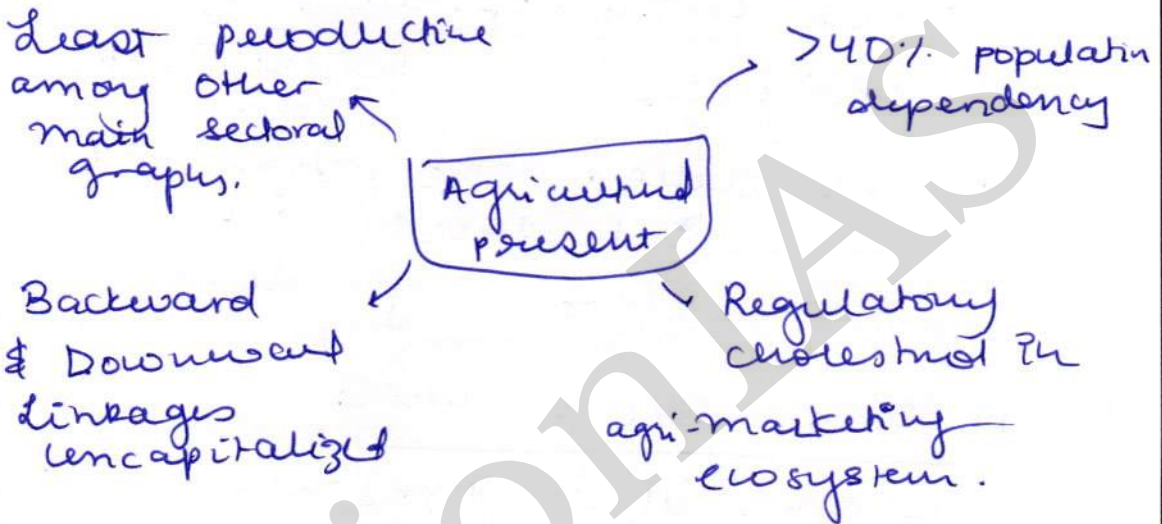 Least productive
among other
main sectoral
graphs.
>40% population
dependency
Agricultural
present
Backward
& Downward
Linkages
uncapitalized
Regulatory
cholestrol in
agri-marketing
ecosystem.
ionIAS